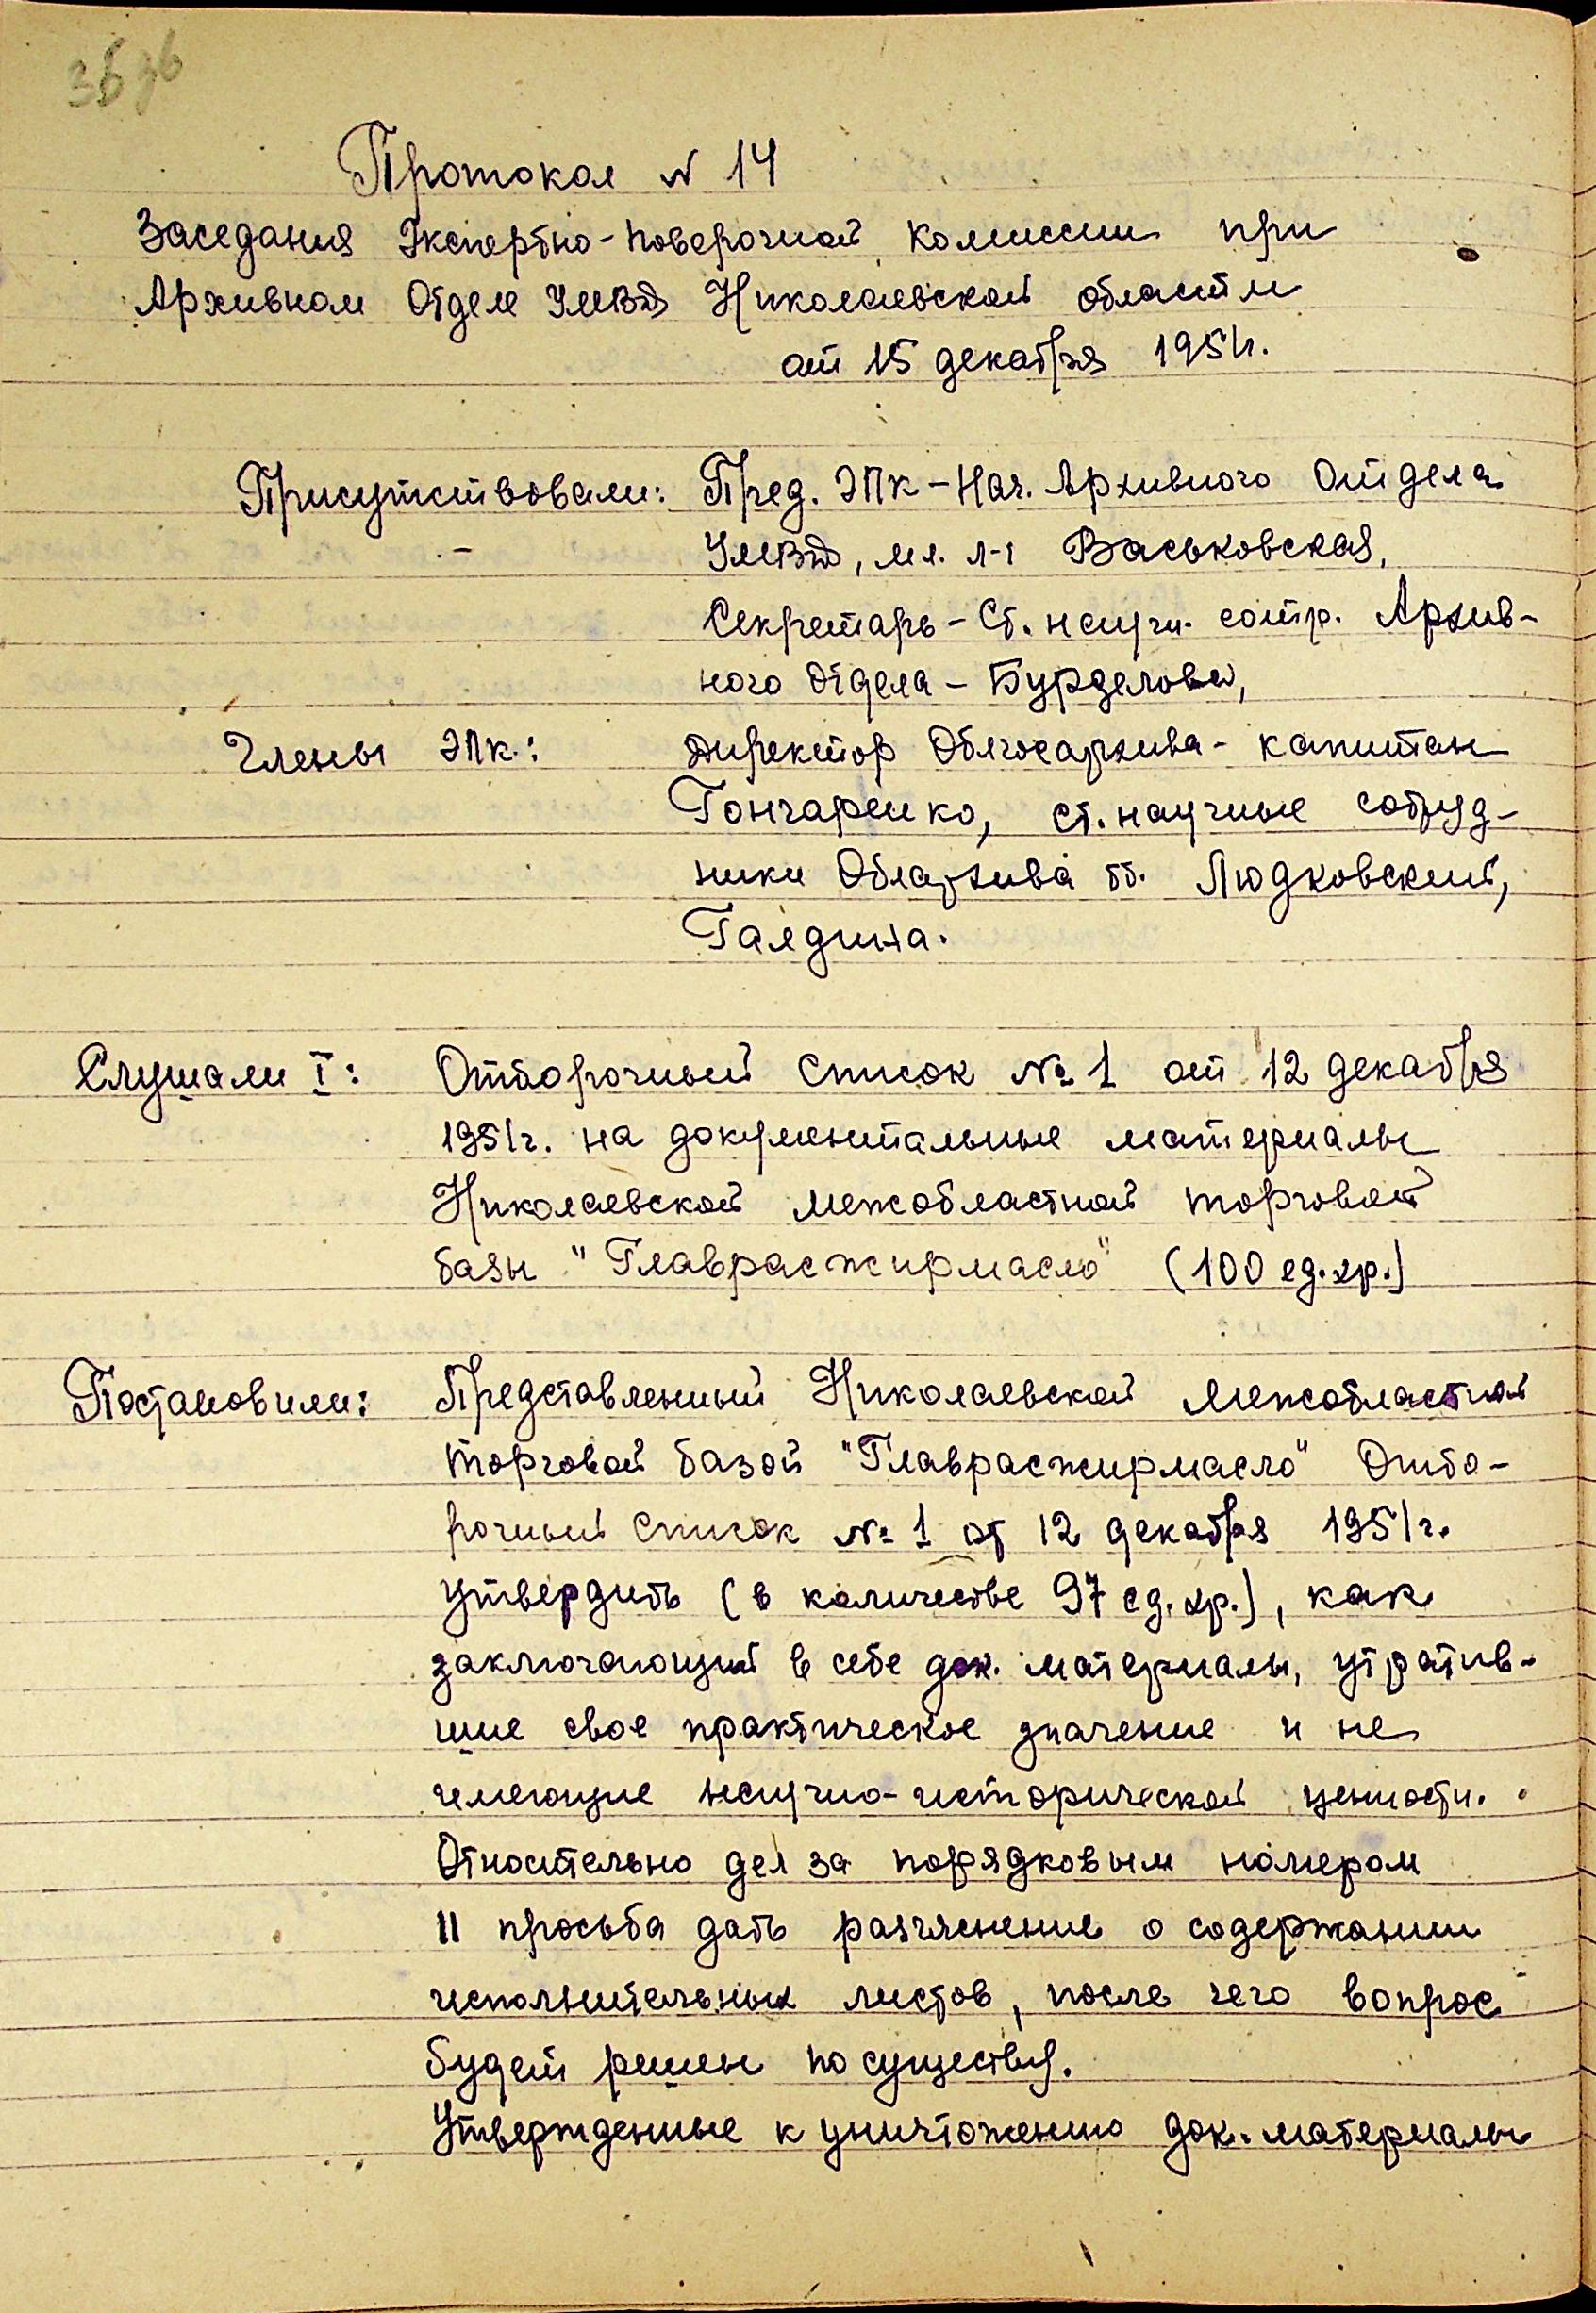 36 36
Протокол № 14
Заседания Экспертно-Поверочной Комиссии при
Архивном Отделе УМВД Николаевской области
от 15 декабря 1951г.
Присутствовали: Пред. ЭПК - Нач. Архивного Отдела
УМВД, мл. л-т Васьковская,
Секретарь - Ст. научн. сотр. Архив-
ного Отдела - Бурделова,
Члены ЭПК: Директор Облгосархива - капитан
Гончаренко, ст. научные сотруд-
ники Облархива тт. Людковский,
Галдина.
Слушали I: Отборочный список № 1 от 12 декабря
1951г. на документальные материалы
Николаевской межобластной торговой
базы "Главрасжирмасло" (100 ед. хр.)
Постановили: Представленный Николаевской Межобластной
торговой базой "Главрасжирмасло" Отбо-
рочный список № 1 от 12 декабря 1951г.
утвердить (в количестве 97 ед. хр.), как
заключающий в себе док. материалы, утратив-
шие свое практическое значение и не
имеющие научно-исторической ценности.
Относительно дел за порядковым номером
11 просьба дать разъяснение о содержании
исполнительных листов, после чего вопрос
будет решен по существу.
Утвержденные к уничтожению док. материалы